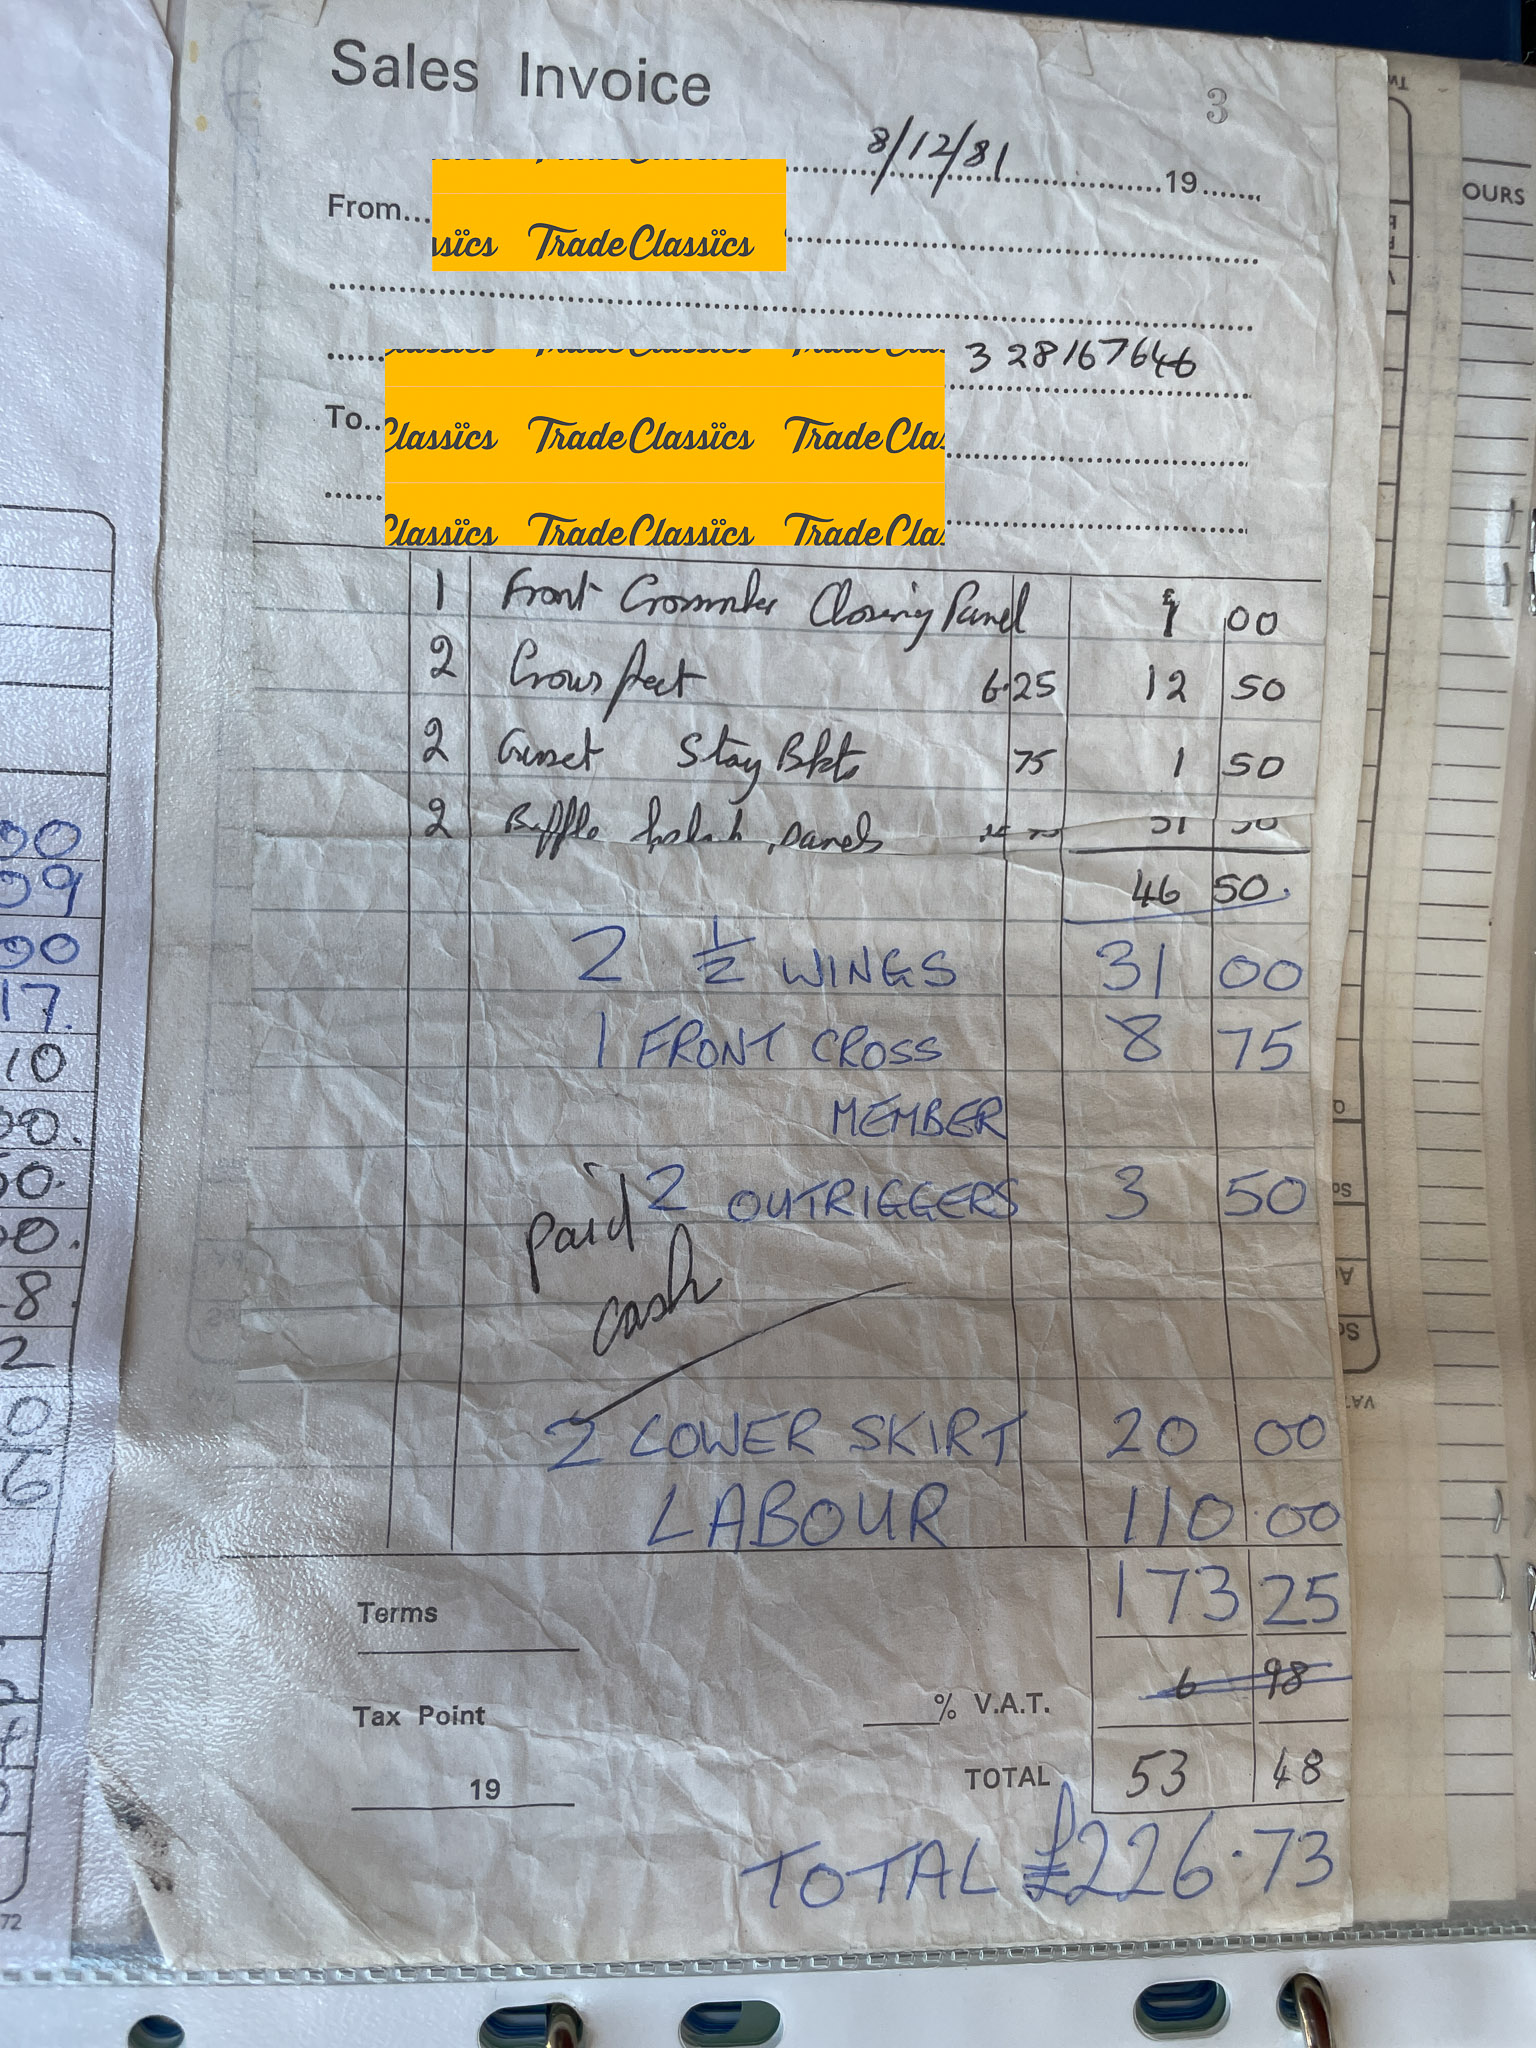 Sales Invoice
3
8/12/81 19
From
sïcs TradeClassïcs
3 28167646
To
Classïcs TradeClassïcs TradeClas
Classïcs TradeClassïcs TradeClas
1 Front Crossmember Closing Panel £1 00
2 Crows feet 6.25 12 50
2 Gusset Stay Bkts 75 1 50
2 Baffle panels 31 50
46 50.
2 1/2 WINGS 31 00
1 FRONT CROSS 8 75
MEMBER
2 OUTRIGGERS 3 50
paid
cash
2 LOWER SKIRT 20 00
LABOUR 110.00
173 25
Terms
6 98
% V.A.T.
Tax Point
TOTAL 53 48
19
TOTAL £226.73
OURS
00
09
00
17.
10
00.
50.
00.
8.
2
0
6
72